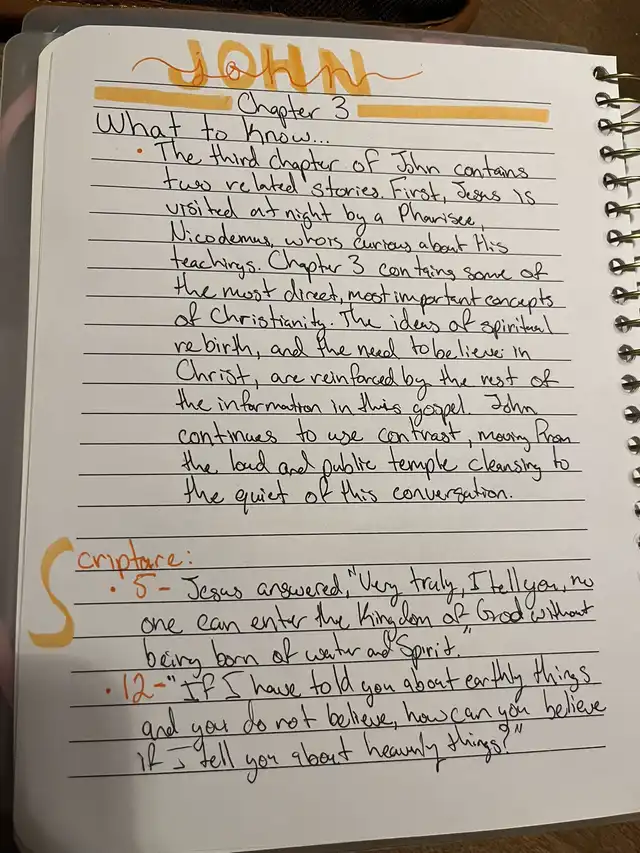 JOHN
john
Chapter 3
What to Know...
• The third chapter of John contains
two related stories. First, Jesus is
visited at night by a Pharisee,
Nicodemus, whois curious about His
teachings. Chapter 3 contains some of
the most direct, most important concepts
of Christianity. The ideas of spiritual
rebirth, and the need to believe in
Christ, are reinforced by the rest of
the information in this gospel. John
continues to use contrast, moving from
the loud and public temple cleansing to
the quiet of this conversation.
Scripture:
• 5- Jesus answered, "Very truly, I tell you, no
one can enter the Kingdom of God without
being born of water and Spirit."
• 12- "If I have told you about earthly things
and you do not believe, how can you believe
if I tell you about heavenly things?"